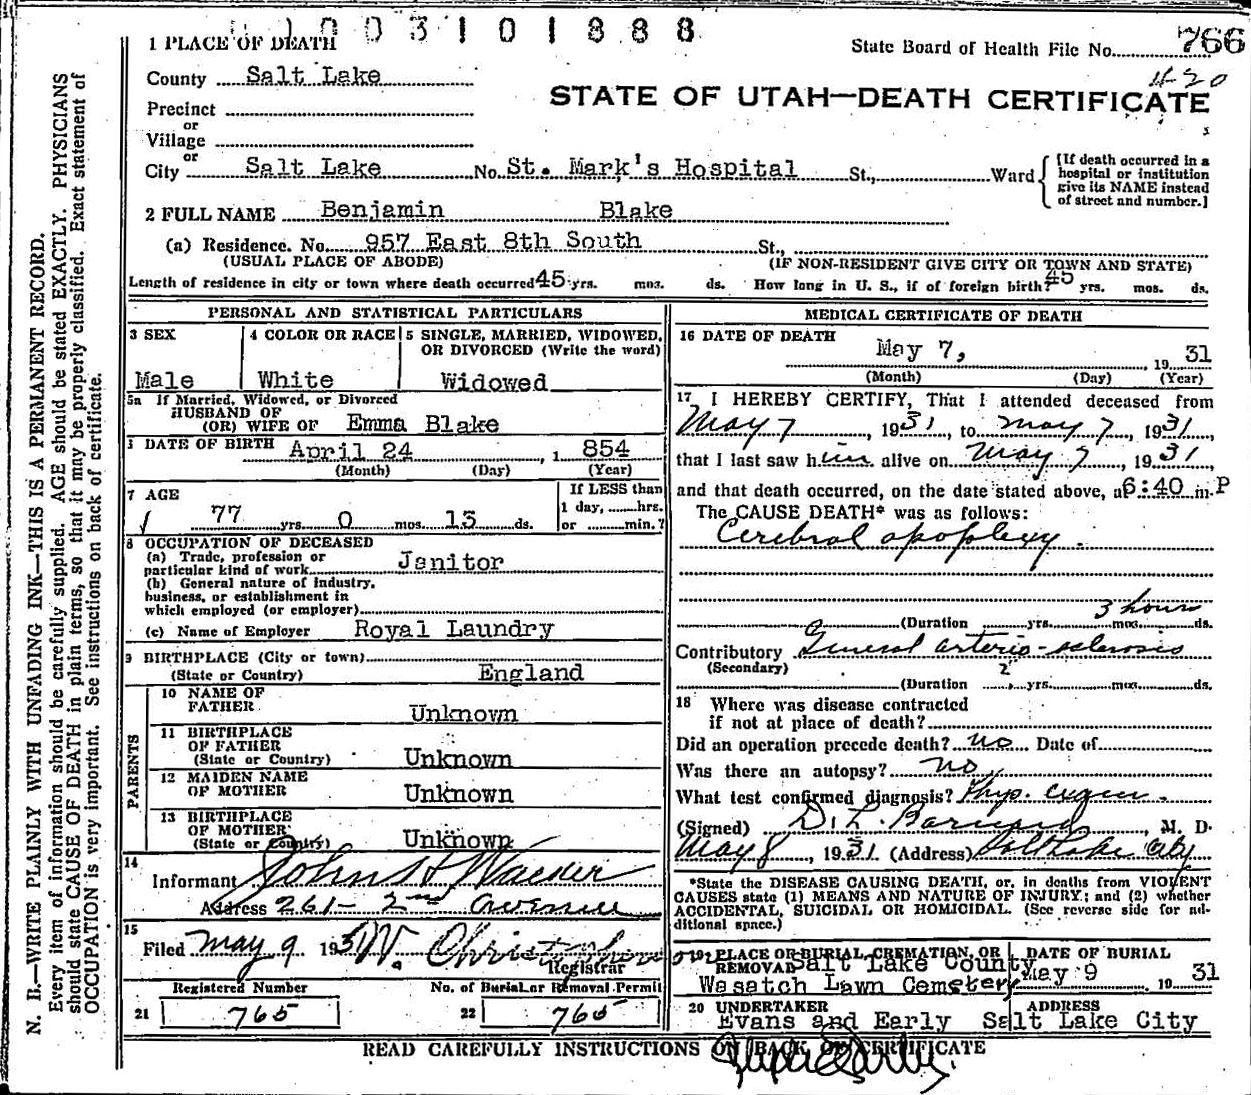 1003101888
1 PLACE OF DEATH
State Board of Health File No. 766
County Salt Lake
420
STATE OF UTAH—DEATH CERTIFICATE
Precinct
or
Village
or
City Salt Lake No. St. Mark's Hospital St., Ward
[If death occurred in a
hospital or institution
give its NAME instead
of street and number.]
2 FULL NAME Benjamin Blake
(a) Residence. No. 957 East 8th South St.,
(USUAL PLACE OF ABODE) (IF NON-RESIDENT GIVE CITY OR TOWN AND STATE)
Length of residence in city or town where death occurred 45 yrs. mos. ds. How long in U. S., if of foreign birth? 45 yrs. mos. ds.
PERSONAL AND STATISTICAL PARTICULARS
3 SEX 4 COLOR OR RACE 5 SINGLE, MARRIED, WIDOWED,
OR DIVORCED (Write the word)
Male White Widowed
5a If Married, Widowed, or Divorced
HUSBAND OF
(OR) WIFE OF Emma Blake
DATE OF BIRTH April 24, 1 854
(Month) (Day) (Year)
7 AGE If LESS than
1 day, hrs.
77 yrs. 0 mos. 13 ds. or min.?
8 OCCUPATION OF DECEASED
(a) Trade, profession or
particular kind of work Janitor
(b) General nature of Industry,
business, or establishment in
which employed (or employer)
(c) Name of Employer Royal Laundry
9 BIRTHPLACE (City or town)
(State or Country) England
PARENTS
10 NAME OF
FATHER Unknown
11 BIRTHPLACE
OF FATHER
(State or Country) Unknown
12 MAIDEN NAME
OF MOTHER Unknown
13 BIRTHPLACE
OF MOTHER
(State or Country) Unknown
14
Informant John H
Address 261- 2nd avenue
15
Filed May 9 1931 W. Christopherson
Registrar
Registered Number No. of Burial or Removal Permit
21 765 22 765
MEDICAL CERTIFICATE OF DEATH
16 DATE OF DEATH
May 7, 19 31
(Month) (Day) (Year)
17 I HEREBY CERTIFY, That I attended deceased from
May 7, 1931, to May 7, 1931,
that I last saw him alive on May 7, 1931,
and that death occurred, on the date stated above, at 6:40 m. P
The CAUSE DEATH* was as follows:
Cerebral apoplexy.
3 hours
(Duration yrs. mos. ds.
Contributory General arterio-sclerosis
(Secondary) 2
(Duration yrs. mos. ds.
18 Where was disease contracted
if not at place of death?
Did an operation precede death? no Date of
Was there an autopsy? no
What test confirmed diagnosis? Phys. exam.
(Signed) D. L. Barnard, M. D.
May 8, 1931 (Address) Salt Lake City
*State the DISEASE CAUSING DEATH, or, in deaths from VIOLENT
CAUSES state (1) MEANS AND NATURE OF INJURY; and (2) whether
ACCIDENTAL, SUICIDAL OR HOMICIDAL. (See reverse side for additional space.)
19 PLACE OF BURIAL, CREMATION, OR
REMOVAL Salt Lake County
Wasatch Lawn Cemetery
DATE OF BURIAL
May 9 19 31
20 UNDERTAKER ADDRESS
Evans and Early Salt Lake City
READ CAREFULLY INSTRUCTIONS ON BACK OF CERTIFICATE
N. B.—WRITE PLAINLY WITH UNFADING INK—THIS IS A PERMANENT RECORD.
Every item of information should be carefully supplied. AGE should be stated EXACTLY. PHYSICIANS
should state CAUSE OF DEATH in plain terms, so that it may be properly classified. Exact statement of
OCCUPATION is very important. See instructions on back of certificate.